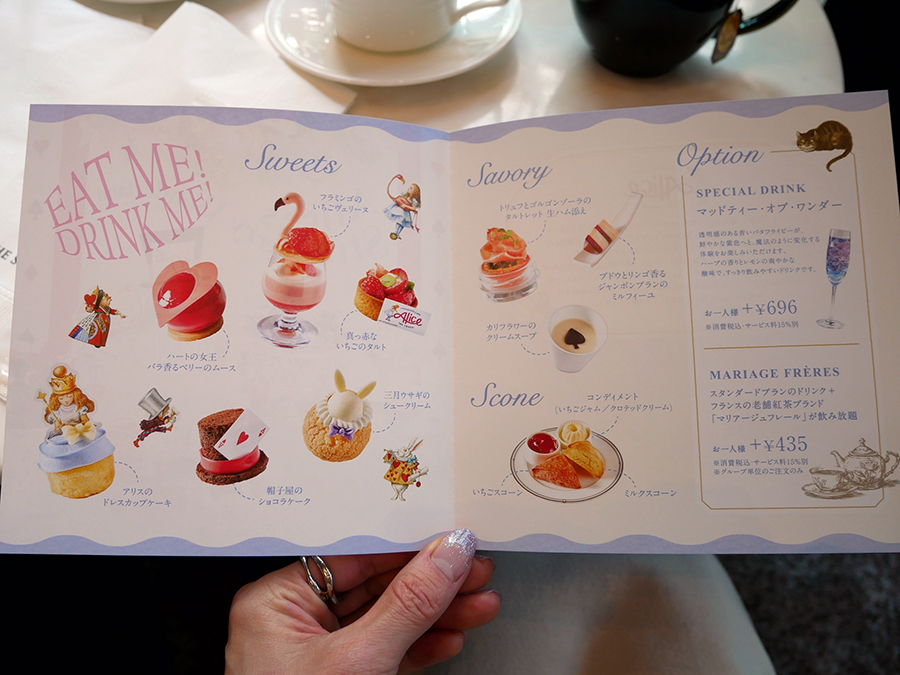 EAT ME!
DRINK ME!
Sweets
フラミンゴの
いちごヴェリーヌ
ハートの女王
バラ香るベリーのムース
真っ赤な
いちごのタルト
Alice
三月ウサギの
シュークリーム
アリスの
ドレスカップケーキ
帽子屋の
ショコラケーク
Savory
トリュフとゴルゴンゾーラの
タルトレット 生ハム添え
ブドウとリンゴ香る
ジャンボンブランの
ミルフィーユ
カリフラワーの
クリームスープ
Scone
コンディメント
(いちごジャム/クロテッドクリーム)
いちごスコーン
ミルクスコーン
Option
SPECIAL DRINK
マッドティー・オブ・ワンダー
透明感のある青いバタフライピーが、
鮮やかな紫色へと、魔法のように変化する
体験をお楽しみいただけます。
ハーブの香りとレモンの爽やかな
酸味で、すっきり飲みやすいドリンクです。
お一人様 +¥696
※消費税込・サービス料15%別
MARIAGE FRÈRES
スタンダードプランのドリンク+
フランスの老舗紅茶ブランド
「マリアージュフレール」が飲み放題
お一人様 +¥435
※消費税込・サービス料15%別
※グループ単位のご注文のみ